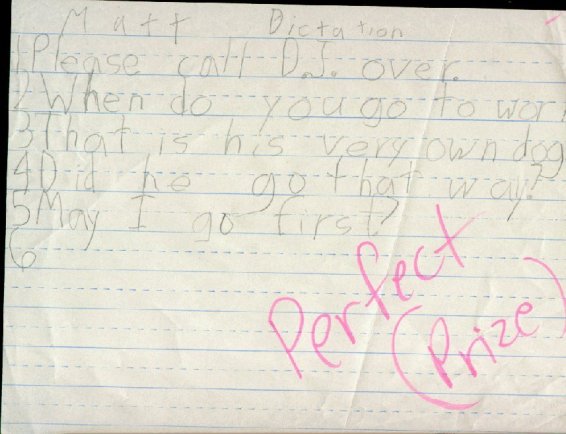 Matt Dictation
1 Please call D.J. over.
2 When do you go to wor
3 That is his very own dog
4 Did he go that way?
5 May I go first?
6
Perfect
(Prize)